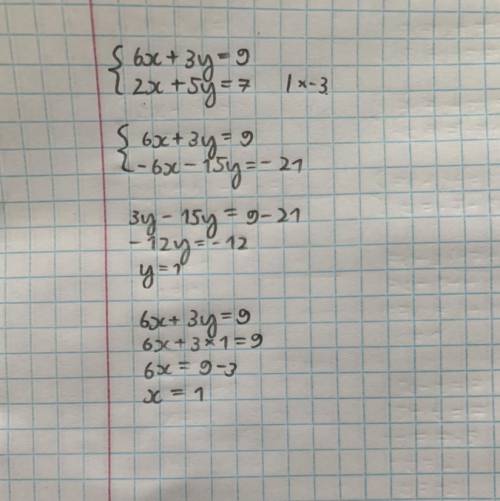 6x + 3y = 9
2x + 5y = 7 | × -3
6x + 3y = 9
-6x - 15y = - 21
3y - 15y = 9 - 21
-12y = -12
y = 1
6x + 3y = 9
6x + 3 × 1 = 9
6x = 9 - 3
x = 1